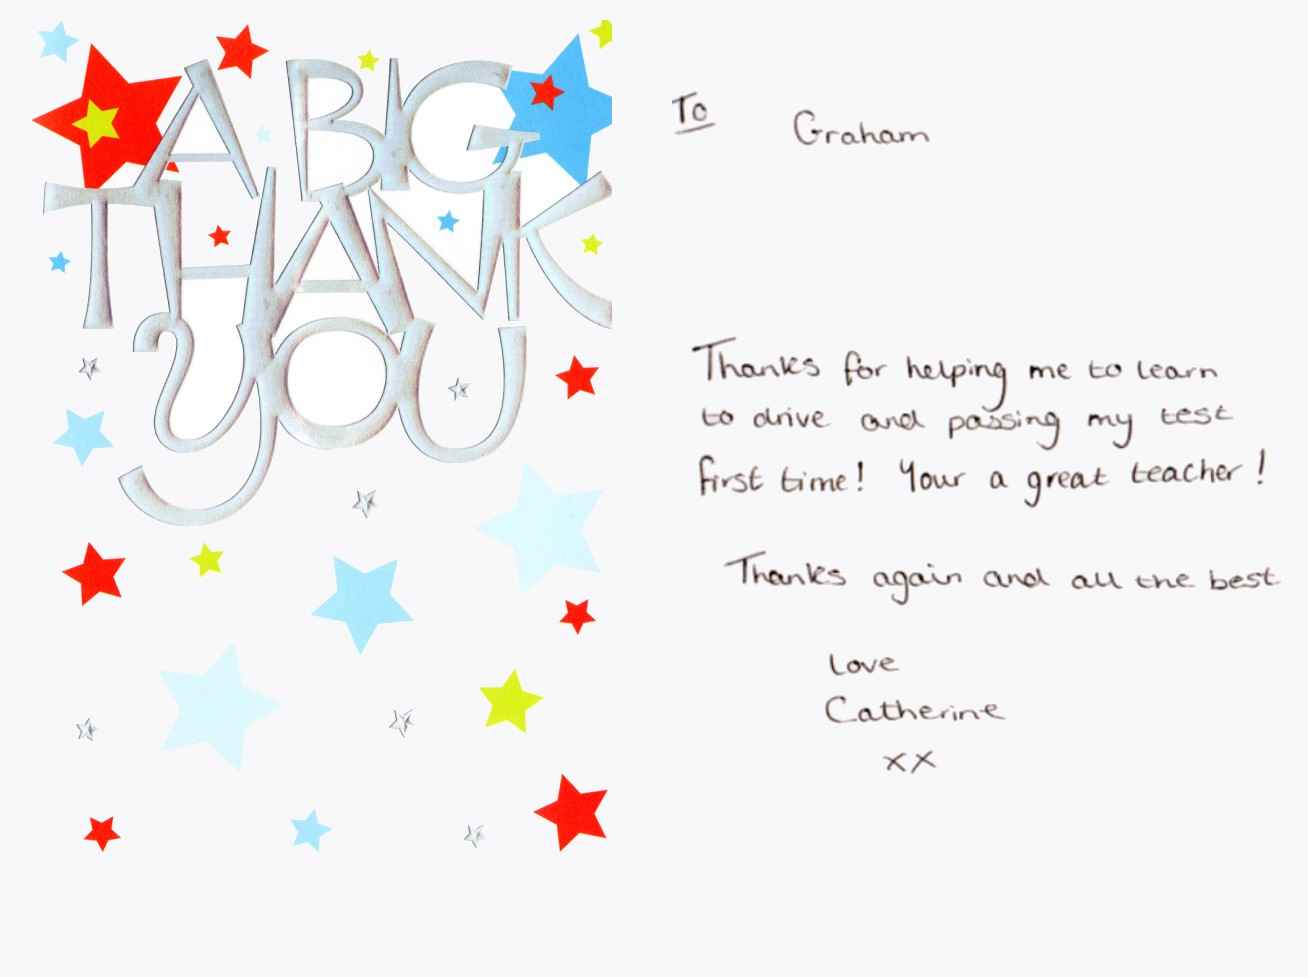 A BIG
THANK
YOU
To
Graham
Thanks for helping me to learn
to drive and passing my test
first time! Your a great teacher!
Thanks again and all the best
Love
Catherine
xx